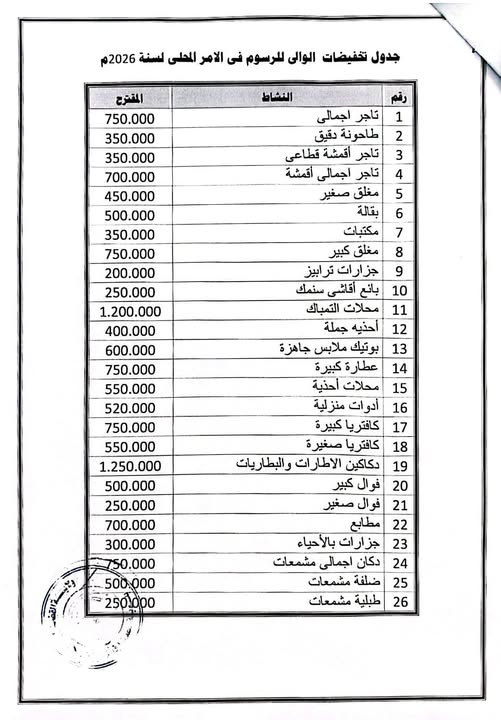 جدول تخفيضات الوالى للرسوم فى الامر المحلى لسنة 2026م
رقم النشاط المقترح
1 تاجر اجمالى 750.000
2 طاحونة دقيق 350.000
3 تاجر أقمشة قطاعى 350.000
4 تاجر اجمالى أقمشة 700.000
5 مغلق صغير 450.000
6 بقالة 500.000
7 مكتبات 350.000
8 مغلق كبير 750.000
9 جزارات ترابيز 200.000
10 بائع أقاشى سنمك 250.000
11 محلات التمباك 1.200.000
12 أحذيه جملة 400.000
13 بوتيك ملابس جاهزة 600.000
14 عطارة كبيرة 750.000
15 محلات أحذية 550.000
16 أدوات منزلية 520.000
17 كافتريا كبيرة 750.000
18 كافتريا صغيرة 550.000
19 دكاكين الاطارات والبطاريات 1.250.000
20 فوال كبير 500.000
21 فوال صغير 250.000
22 مطابع 700.000
23 جزارات بالأحياء 300.000
24 دكان اجمالى مشمعات 750.000
25 ضلفة مشمعات 500.000
26 طبلية مشمعات 250.000